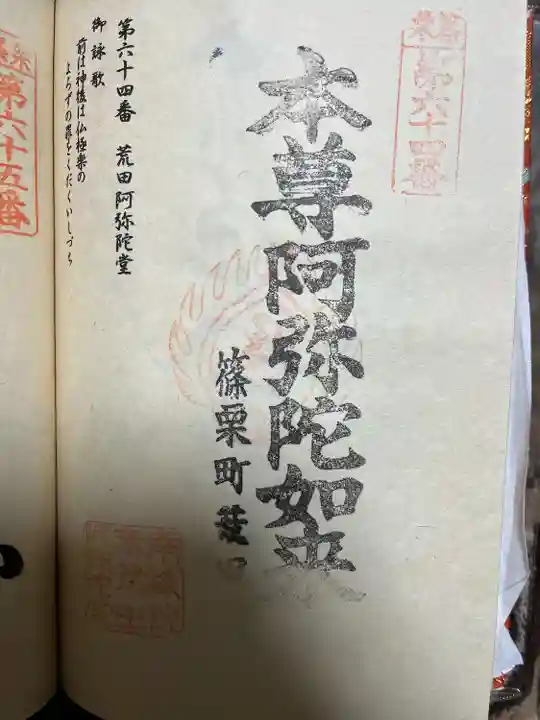 篠栗
第六十四番
本尊阿弥陀如来
篠栗町荒田
第六十四番 荒田阿弥陀堂
御詠歌
前は神後は仏極楽の
よろずの罪をくだくいしづち
第六十五番